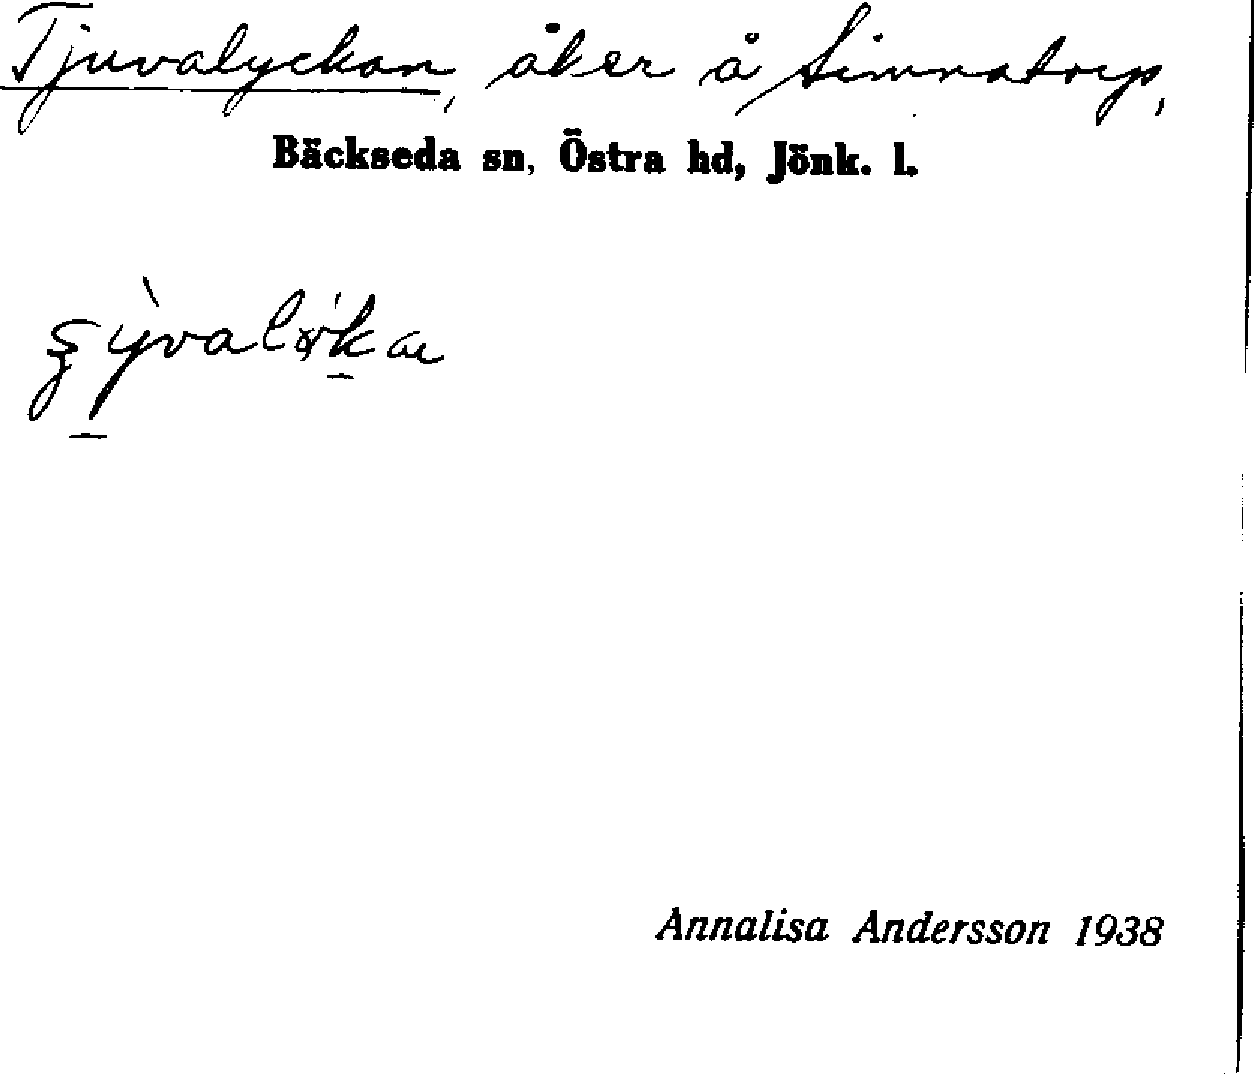 Tjuvalyckan, åker å Simnatorp,
Bäckseda sn, Östra hd, Jönk. l.
Annalisa Andersson 1938